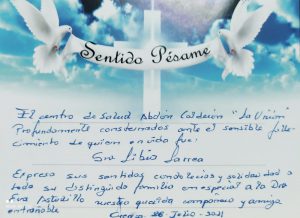 Sentido Pésame
El centro de Salud Abdón Calderón "La Unión"
Profundamente consternados ante el sensible falle-
cimiento de quien en vida fue:
Sra Libia Larrea
Expresa sus sentidas condolencias y solidaridad a
toda su distinguida familia en especial a la Dra
Eva Astudillo nuestra querida compañera y amiga
entrañable
Cuenca Julio - 2021